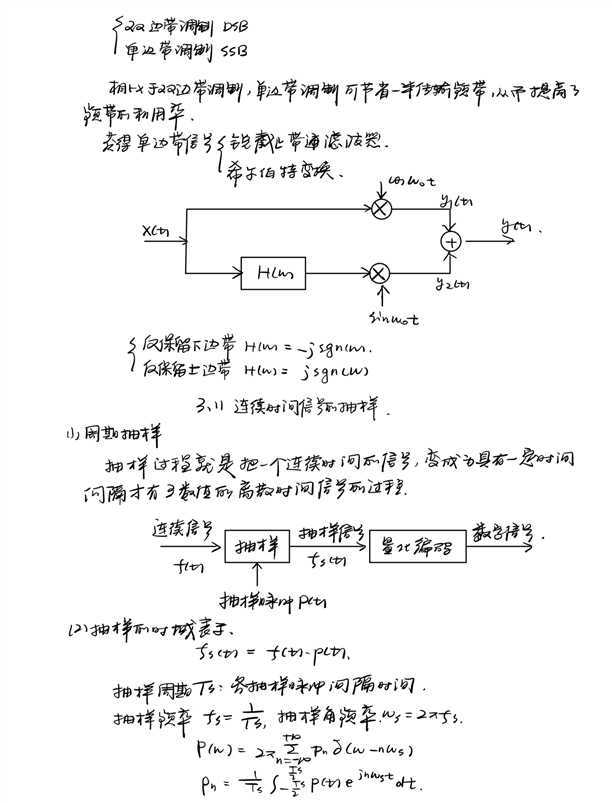 双边带调制 DSB
单边带调制 SSB
相比于双边带调制,单边带调制可节省一半传输频带,从而提高了
频带的利用率.
获得单边带信号 锐截止带通滤波器.
希尔伯特变换.
cosω₀t
y₁(t)
x(t)
y(t).
H(ω)
y₂(t)
sinω₀t
仅保留下边带 H(ω) = -jsgn(ω).
仅保留上边带 H(ω) = jsgn(ω)
3.11 连续时间信号的抽样.
(1)周期抽样
抽样过程就是把一个连续时间的信号,变成为具有一定时间
间隔才有的数值的离散时间信号的过程.
连续信号 抽样信号 数字信号.
抽样 量化编码
f(t) fs(t)
抽样脉冲 p(t)
(2)抽样的时域表示.
fs(t) = f(t)·p(t).
抽样周期Ts: 各抽样脉冲间隔时间.
抽样频率 fs = 1/Ts, 抽样角频率.ωs = 2πfs.
P(ω) = 2π∑_{n=-∞}^{+∞} pn δ(ω-nωs)
pn = 1/Ts ∫_{-Ts/2}^{Ts/2} p(t) e^{jnωst} dt.